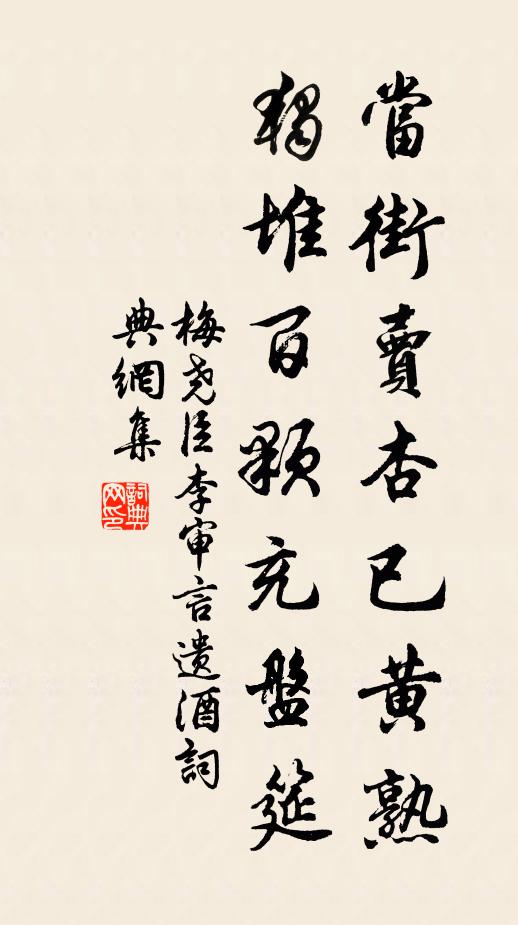 當街賣杏已黃熟
獨堆百顆充盤筵
梅尧臣李审言遗酒詞
典網集
詞典
网印